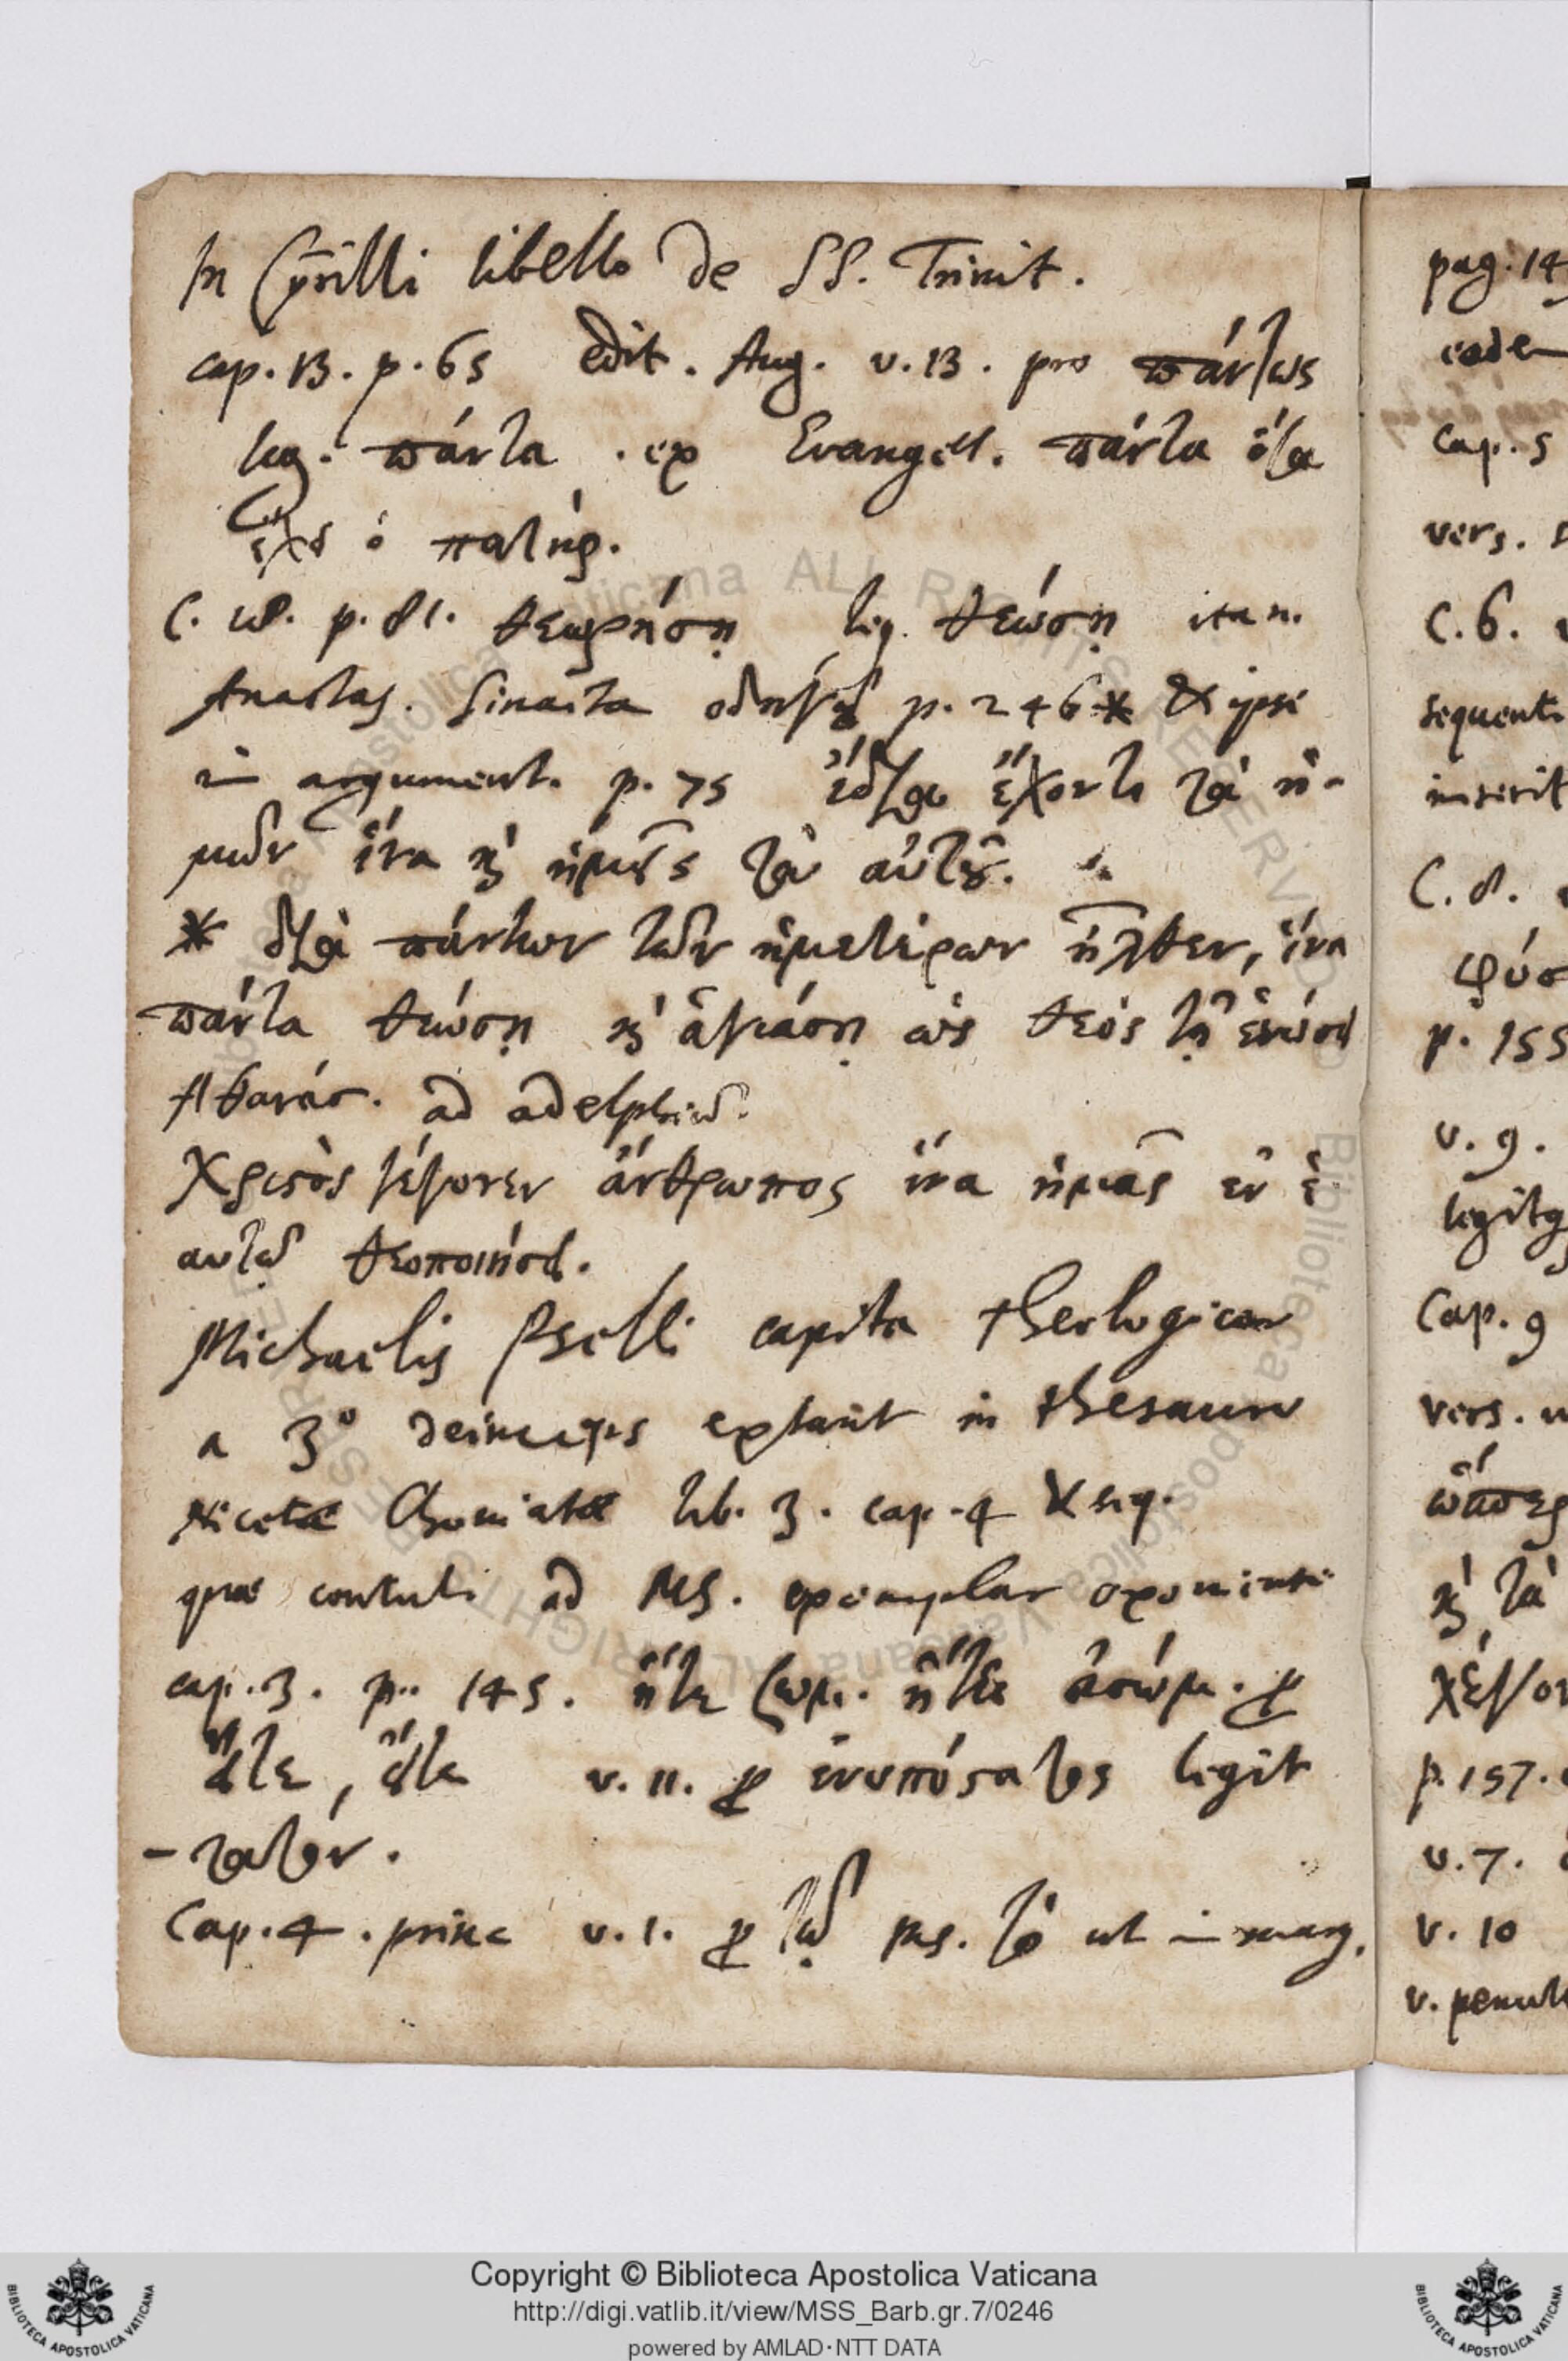 In Cyrilli libello de SS. Trinit.
cap. 13. p. 65 edit. Aug. v. 13. pro πάντως
leg. πάντα . ex Evangel. πάντα ὅσα
ἔχει ὁ πατήρ.
C. 18. p. 81. θεωρήσῃ leg. θεώσῃ ita n.
Anastas. Sinaita ὁδηγῷ p. 246 * & ipse
in argument. p. 75 ἔχοντα τὰ ἡ-
μῶν ἵνα καὶ ἡμεῖς τὰ αὐτοῦ.
* διὰ πάντων τῶν ἡμετέρων ἦλθεν, ἵνα
πάντα θεώσῃ καὶ ἁγιάσῃ ὡς θεὸς τῇ ἑνώσει
Αθανάσ. ad adelphiū.
Χριστὸς γέγονεν ἄνθρωπος ἵνα ἡμᾶς ἐν ἑ
αυτῷ θεοποιήσει.
Michaelis Pselli capita theologica
a 3º deinceps extant in thesauro
Nicetæ Choniatæ lib. 3. cap. 4 & seq.
quæ contuli ad MS. exemplar oxoniense
cap. 3. p. 145. ἥτε σωμ. ἥτε ἀσώμ. p
οὔτε, οὔτε v. 11. p ἐνυπόστατος legit
-τατον.
Cap. 4. princ v. 1. p τῷ MS. τὸ ut in marg.
pag. 14
eode
cap. 5
vers.
C. 6.
sequent
inserit
C. 8.
φύσ
p. 155
v. 9.
legitq
Cap. 9
vers.
ὥσπερ
καὶ τὰ
p. 157.
v. 7.
v. 10
v. penult
Copyright © Biblioteca Apostolica Vaticana
http://digi.vatlib.it/view/MSS_Barb.gr.7/0246
powered by AMLAD·NTT DATA
BIBLIOTECA APOSTOLICA VATICANA
BIBLIOTECA APOSTOLICA VATICANA